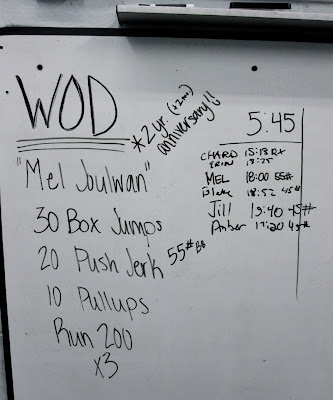 WOD
*2 yr. (+2mo)
anniversary!!
"Mel Joulwan"
30 Box Jumps
20 Push Jerk 55# BB
10 Pullups
Run 200
x3
5:45
CHARD 15:13 RX
ERIN 13:25
MEL 18:00 55#
18:52 45#
Jill 19:40 45#
Amber 17:20 45#